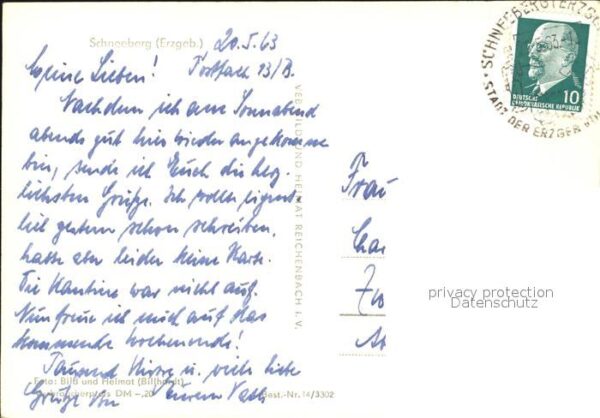 Schneeberg (Erzgeb.)
20.5.63
Meine Lieben! Postfach 13/B.
Nachdem ich am Sonnabend
abends gut hier wieder angekomme
bin, sende ich Euch die herz-
lichsten Grüße. Ich wollte eigent-
lich gestern schon schreiben,
hatte aber leider keine Karte.
Die Kantine war nicht auf.
Nun freue ich mich auf das
kommende Wochenende!
Tausend Küsse u. viele liebe
Grüße von Eurem
Foto: Bild und Heimat (Billhardt)
Verbraucherpreis DM -,20
Best.-Nr. 14/3302
VEB BILD UND HEIMAT REICHENBACH I. V.
SCHNEEBERG (ERZGEB
STADT DER ERZGEB
DEUTSCHE
DEMOKRATISCHE REPUBLIK
10
Frau
privacy protection
Datenschutz